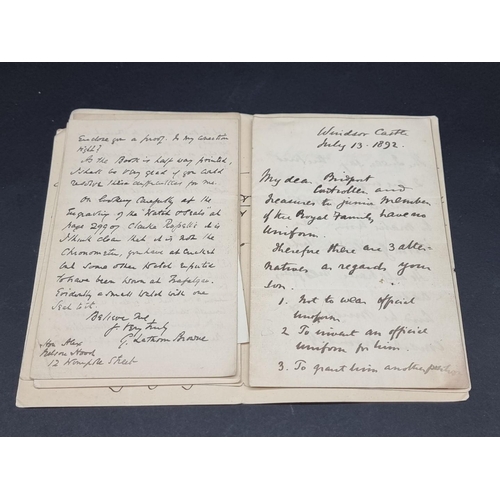 Enclose you a proof. Is my Question
right?
As the Book is half way printed,
I shall be very glad if you could
these difficulties for me.
On looking Carefully at the
Engraving of the Watch & Seals at
page 299 of Clarke
I think clear that it is not the
Chronometer, you have at
but some other Watch
to have been worn at Trafalgar.
Evidently a small Watch with one
Believe me
Yrs Very Truly
G. Lathom Browne
Hon Alex
Nelson Hood
12 Wimpole Street
Windsor Castle
July 13. 1892.
My dear Bridport
Controllers and
Treasurers to junior members
of the Royal Family have no
Uniform.
Therefore there are 3 alter-
natives as regards your
Son.
1. Not to wear official
uniform
2 To invent an official
uniform for him.
3. To grant him another